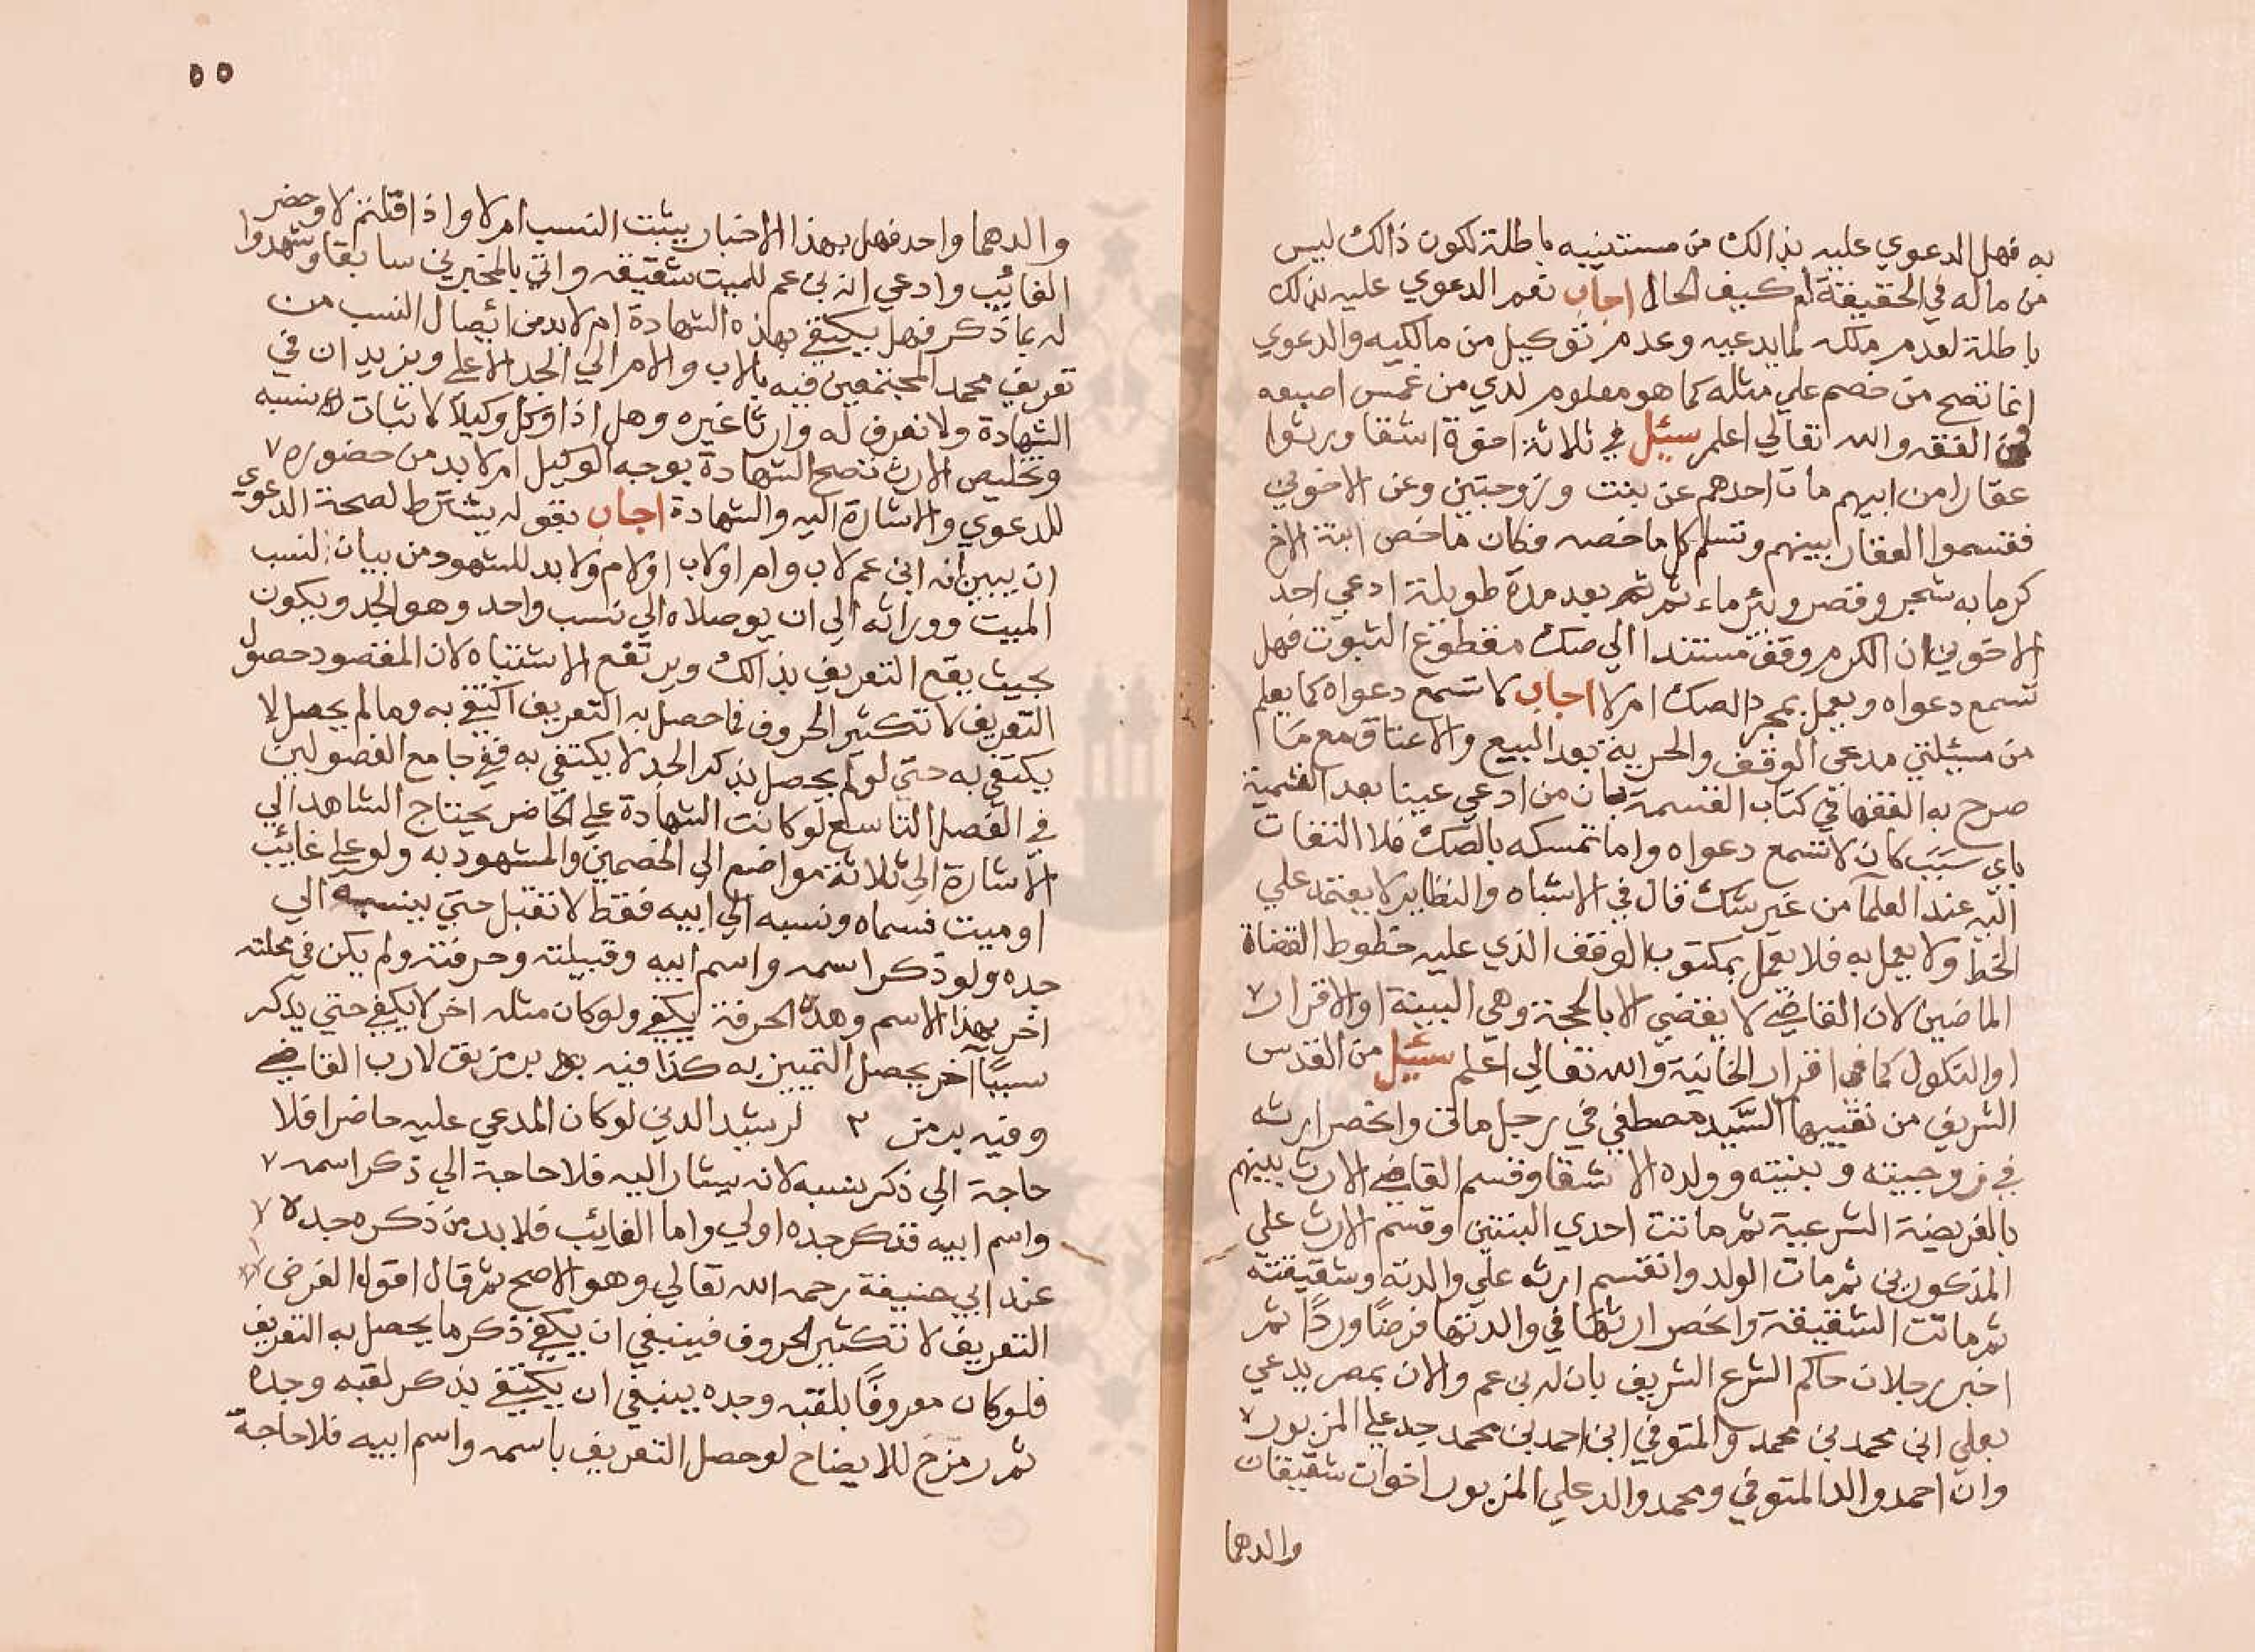 به فهل الدعوي عليه بذالك من مستنيبه باطلة لكون ذالك ليس
من ماله في الحقيقة ام كيف الحال اجاب نعم الدعوي عليه بذلك
باطلة لعدم ملكه لما يدعيه وعدم توكيل من مالكيه والدعوي
انما تصح من خصم علي مثله كما هو معلوم لدي من غمس اصبعه
في الفقه والله تعالي اعلم سئيل في ثلاثة اخوة اشقا ورثوا
عقارا من ابيهم مات احدهم عن بنت وزوجتين وعن الاخوين
فقسموا العقار بينهم وتسلم كل ما خصه فكان ما خص ابنة الاخ
كرما به شجر وقصر وبئر ماء ثم ثم بعد مدة طويلة ادعي احد
الاخوين ان الكرم وقف مستندا الي صك مقطوع الثبوت فهل
تسمع دعواه ويعمل بمجرد الصك ام لا اجاب لا تسمع دعواه كما يعلم
من مسيلتي مدعي الوقف والحرية بعد البيع والاعتاق مع ما
صرح به الفقها في كتاب القسمة بان من ادعي عينا بعد القسمة
باي سبب كان لا تسمع دعواه واما تمسكه بالصك فلا التفات
اليه عند العلما من غير شك قال في الاشباه والنظاير لا يعتمد علي
الخط ولا يعمل به فلا يعمل بمكتوب الوقف الذي عليه خطوط القضاة
الماضين لان القاضي لا يقضي الا بالحجة وهي البينة او الاقرار
او النكول كما في اقرار الخانية والله تعالي اعلم سئيل من القدس
الشريف من نقيبها السيد مصطفي في رجل مات وانحصر ارثه
في زوجيته وبنيته وولده الاشقا وقسم القاضي الارث بينهم
بالفريضة الشرعية ثم ماتت احدي البنتين وقسم الارث علي
المذكورين ثم مات الولد وانقسم ارثه علي والدته وشقيقته
ثم ماتت الشقيقة وانحصر ارثها في والدتها فرضا وردا ثم
اخبر رجلان حاكم الشرع الشريف بان له بن عم والان بمصر يدعي
بعلي ابن محمد بن محمد والمتوفي ابن احمد بن محمد جد علي المزبور
وان احمد والد المتوفي ومحمد والد علي المزبور اخوان شقيقان
والدهما
٥٥
والدهما واحد فهل بهذا الاخبار يثبت النسب ام لا واذا قلتم لا وحضر
الغائيب وادعي انه بن عم للميت شقيقه واتي بالمخبرين سابقا وشهدوا
له بما ذكر فهل يكتفي بهذه الشهادة ام لا بد من ائيصال النسب من
تعريف محمد المجتمعين فيه بالاب والام الي الجد الاعلي ويزيد ان في
الشهادة ولا نعرف له وارثا غيره وهل اذا وكل وكيلا لاثبات نسبه
وتخليص الارث تصح الشهادة بوجه الوكيل ام لا بد من حضوره
للدعوي والاشارة اليه والشهادة اجاب بقوله يشترط لصحة الدعوي
ان يبين انه ابن عم لاب وام او لاب او لام ولا بد للشهود من بيان نسب
الميت ووراثه الي ان يوصلاه الي نسب واحد وهو الجد ويكون
بحيث يقع التعريف بذالك ويرتفع الاشتباه لان المقصود حصول
التعريف لا تكثير الحروف فما حصل به التعريف اكتفي به وما لم يحصل لا
يكتفي به حتي لو لم يحصل بذكر الجد لا يكتفي به ففي جامع الفصولين
في الفصل التاسع لو كانت الشهادة علي الحاضر يحتاج الشاهد الي
الاشارة الي ثلاثة مواضع الي الخصمين والمشهود به ولو علي غائيب
او ميت فسماه ونسبه الي ابيه فقط لا تقبل حتي ينسبه الي
جده ولو ذكر اسمه واسم ابيه وقبيلته وحرفته ولم يكن في محلته
اخر بهذا الاسم وهذه الحرفة يكفي ولو كان مثله اخر لا يكفي حتي يذكر
سببا اخر يحصل التمييز به كذا فيه برمز بق لادب القاضي
وفيه برمز ٣ لرشيد الدين لو كان المدعي عليه حاضرا فلا
حاجة الي ذكر نسبه لانه يشار اليه فلا حاجة الي ذكر اسمه
واسم ابيه فذكر جده اولي واما الغايئب فلا بد من ذكره جده
عند ابي حنيفة رحمه الله تعالي وهو الاصح ثم قال اقول الغرض
التعريف لا تكثير الحروف فينبغي ان يكفي ذكر ما يحصل به التعريف
فلو كان معروفا بلقبه وجده ينبغي ان يكتفي بذكر لقبه وجده
ثم رمز خ للايضاح لو حصل التعريف باسمه واسم ابيه فلا حاجة